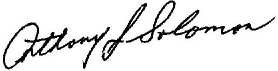 Anthony J Solomon